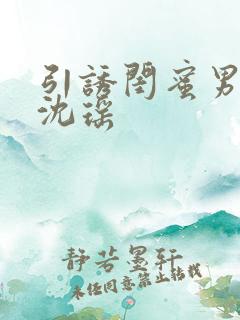 引誘閨蜜男
沈瑶
静若墨轩
未经同意禁止转载